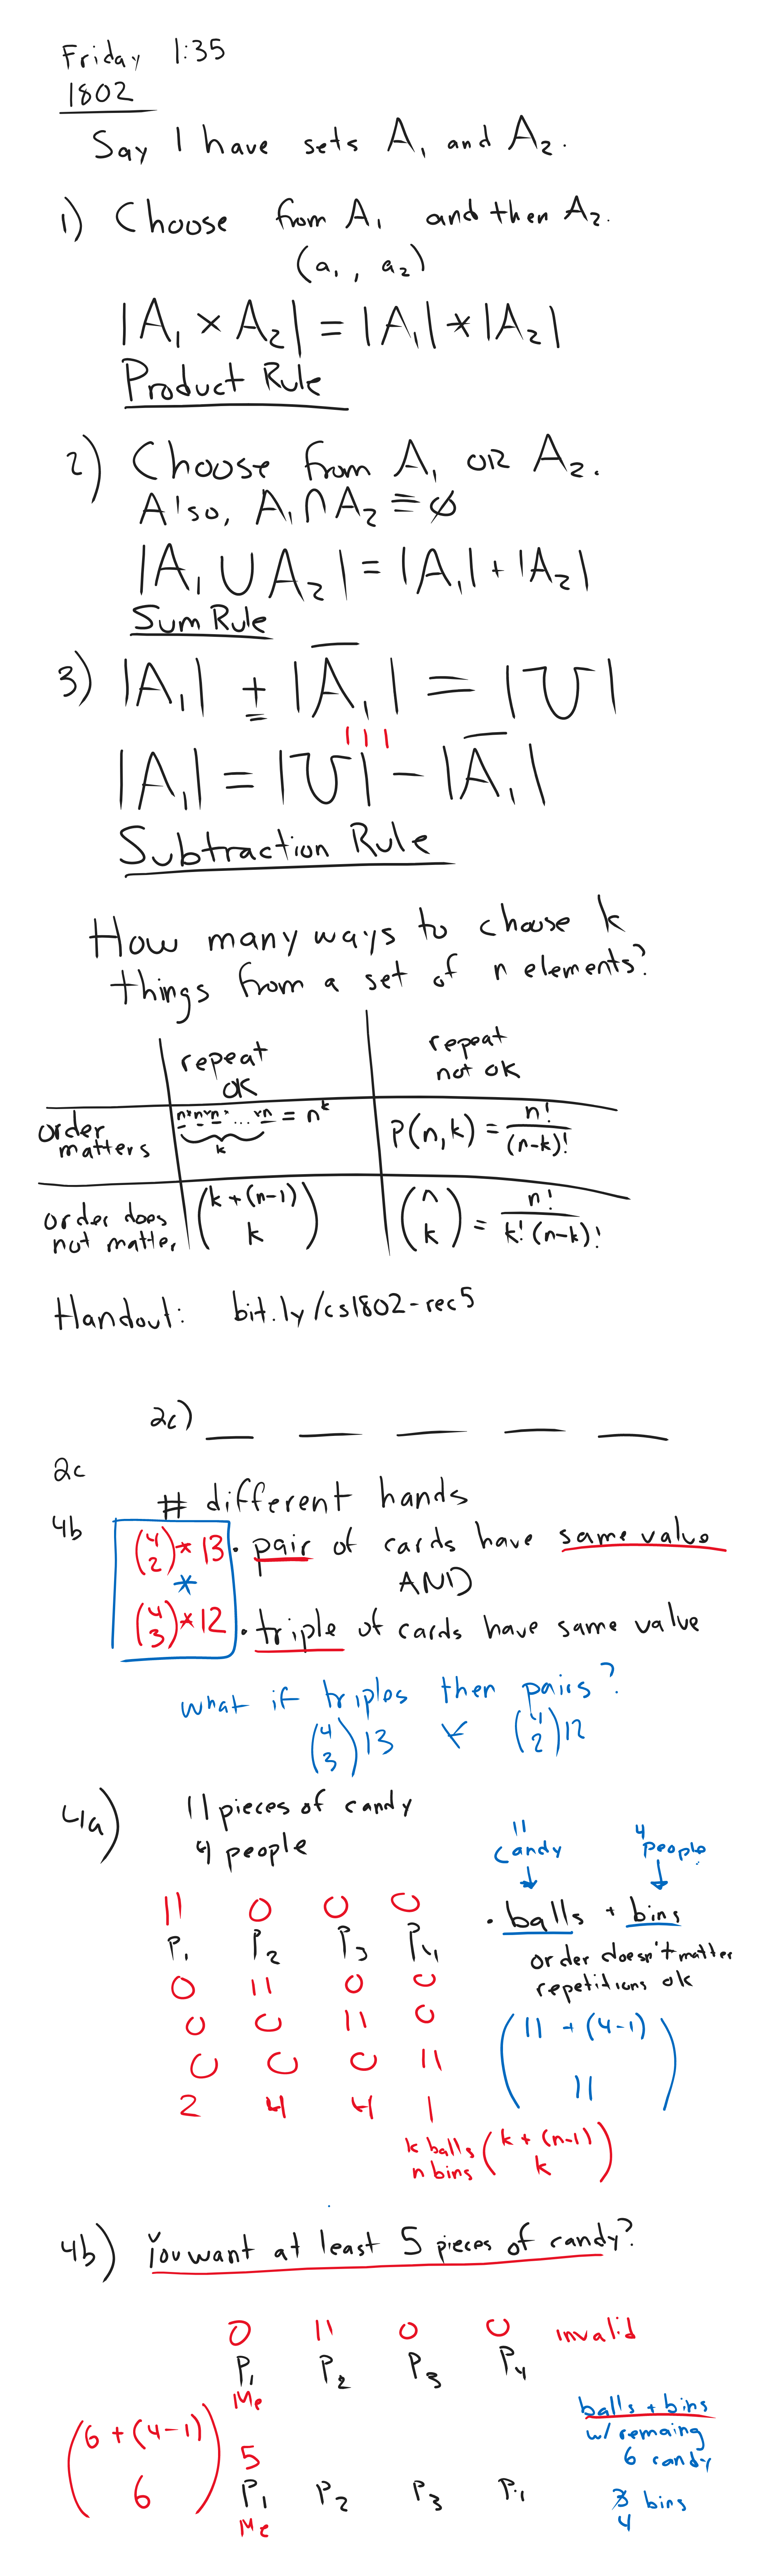 Friday 1:35
1802
Say I have sets A₁ and A₂.
1) Choose from A₁ and then A₂.
(a₁, a₂)
|A₁ × A₂| = |A₁| * |A₂|
Product Rule
2) Choose from A₁ OR A₂.
Also, A₁ ∩ A₂ ≡ ∅
|A₁ ∪ A₂| = |A₁| + |A₂|
Sum Rule
3) |A₁| + |A̅₁| = |U|
|A₁| = |U| - |A̅₁|
Subtraction Rule
How many ways to choose k
things from a set of n elements?
repeat OK
repeat not OK
order matters
n*n*n* ... *n = n^k
k
P(n,k) = n!/(n-k)!
order does not matter
(k+(n-1) / k)
(n / k) = n!/(k!(n-k)!)
Handout: bit.ly/cs1802-rec5
2c) _ _ _ _ _
2c
4b
# different hands
(4 / 2) * 13 · pair of cards have same value
* AND
(4 / 3) * 12 · triple of cards have same value
what if triples then pairs?
(4 / 3) 13 * (4 / 2) 12
4a) 11 pieces of candy
4 people
11 candy ↓ 4 people ↓
· balls + bins
order doesn't matter
repetitions ok
11 0 0 0
P₁ P₂ P₃ P₄
0 11 0 0
0 0 11 0
0 0 0 11
2 4 4 1
(11 + (4-1) / 11)
k balls
n bins
(k + (n-1) / k)
4b) You want at least 5 pieces of candy?
0 11 0 0 invalid
P₁ P₂ P₃ P₄
Me
balls + bins
w/ remaing
6 candy
3 bins
4
(6 + (4-1) / 6)
5
P₁ P₂ P₃ P₁
Me